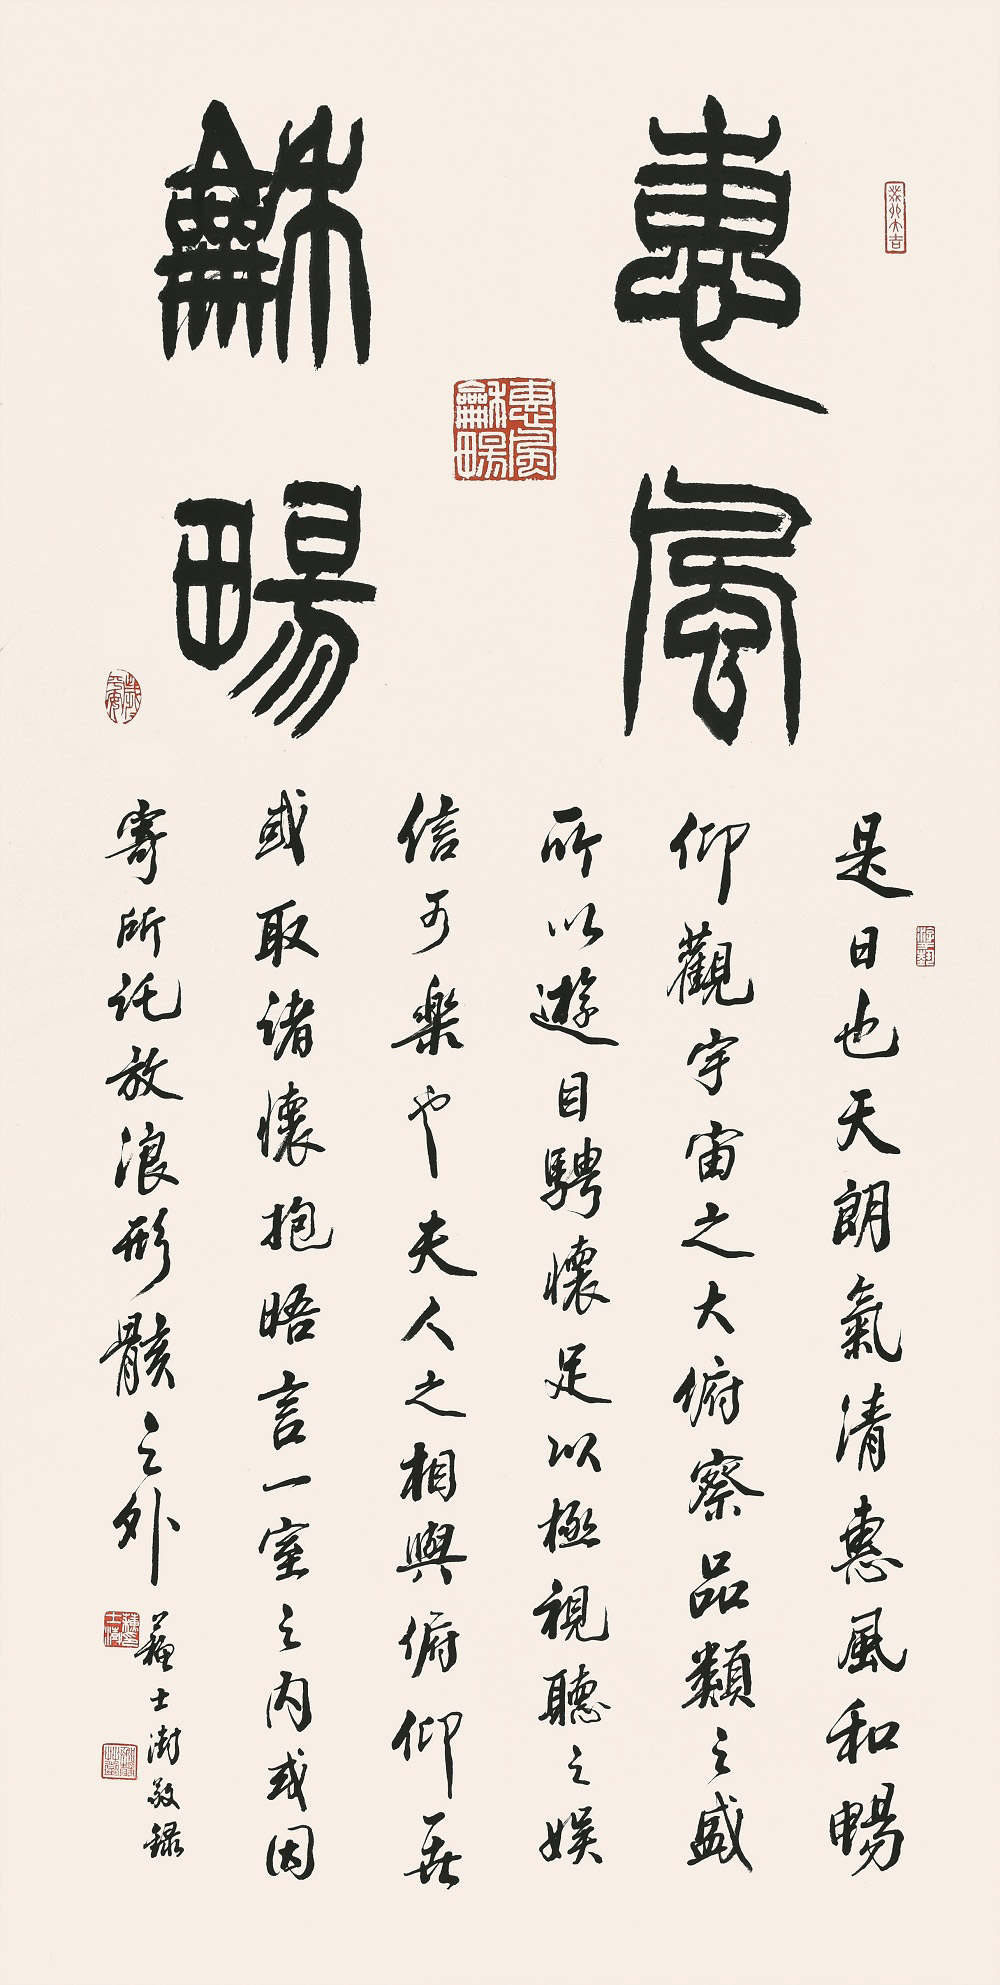 惠風
龢畼
癸卯大吉
惠風龢畼
是日也天朗氣清惠風和暢
仰觀宇宙之大俯察品類之盛
所以遊目騁懷足以極視聽之娛
信可樂也夫人之相與俯仰一世
或取諸懷抱晤言一室之內或因
寄所託放浪形骸之外
蘇士澍敬錄
蘇士澍